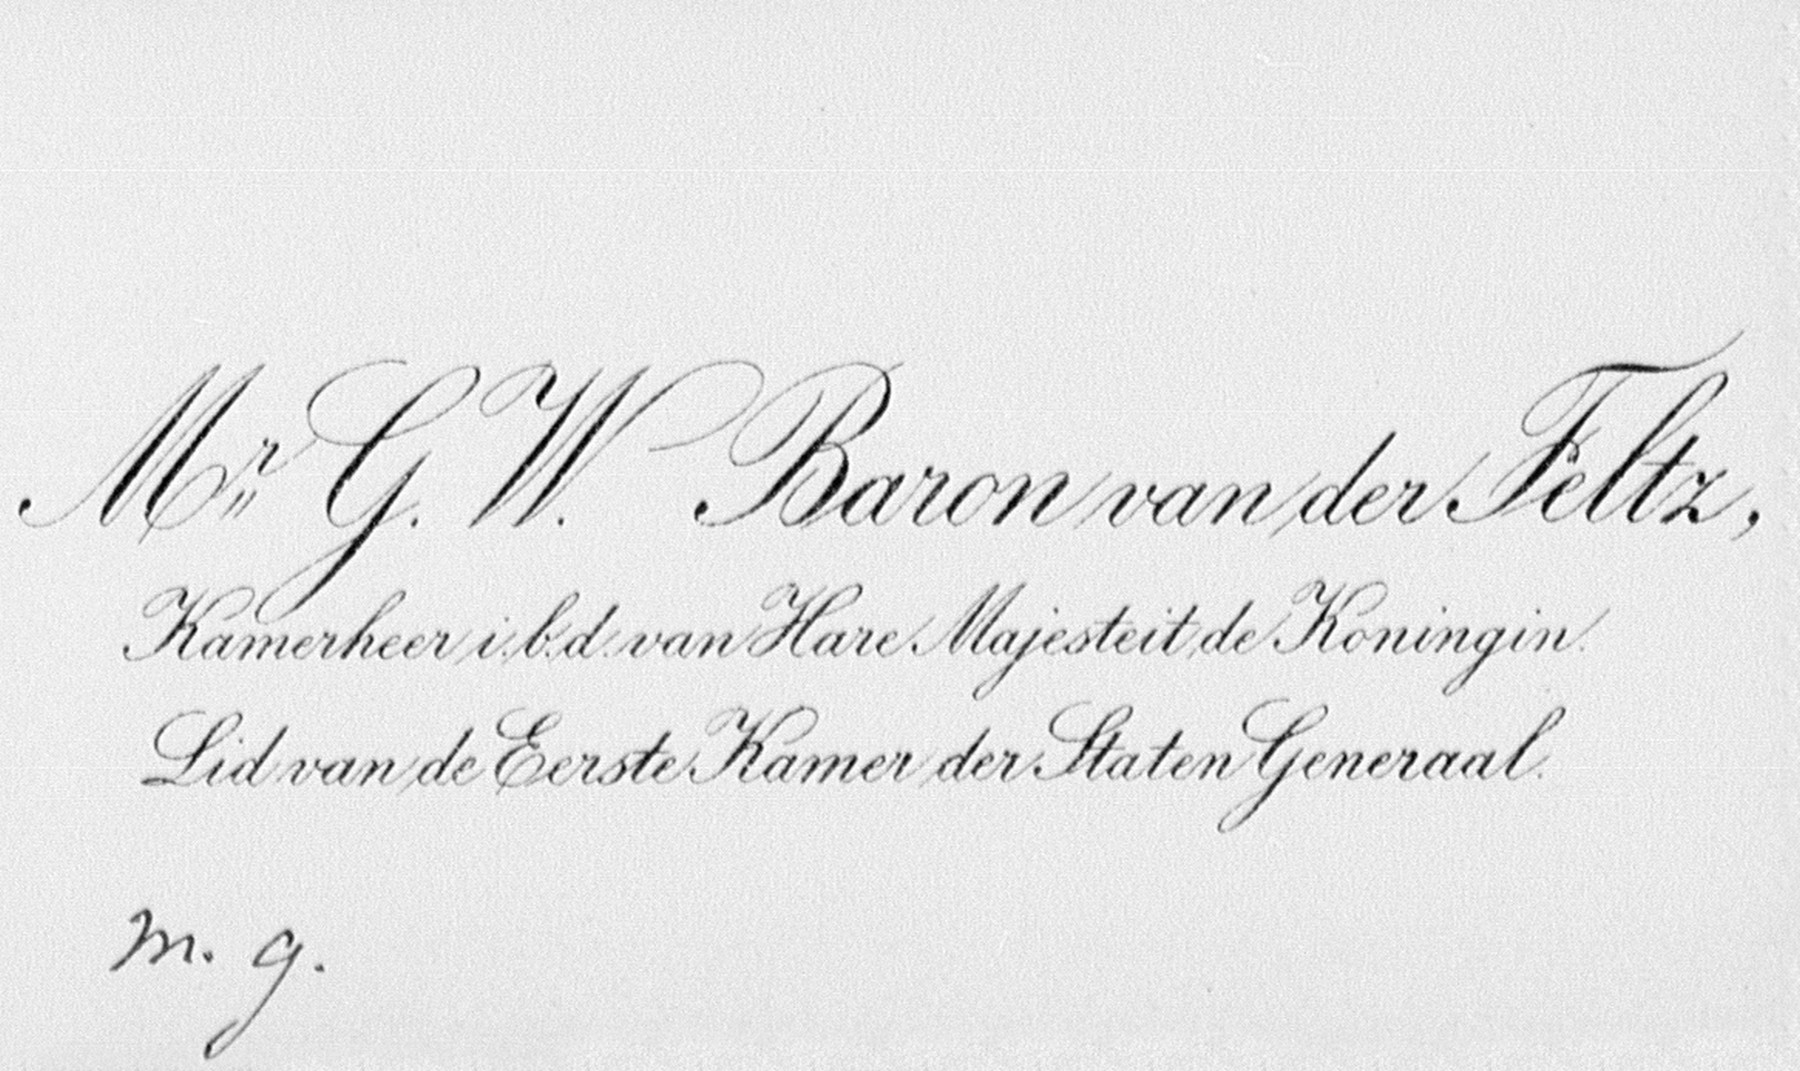 Mr. G. W. Baron van der Feltz,
Kamerheer i. b. d. van Hare Majesteit de Koningin.
Lid van de Eerste Kamer der Staten Generaal.
m. g.